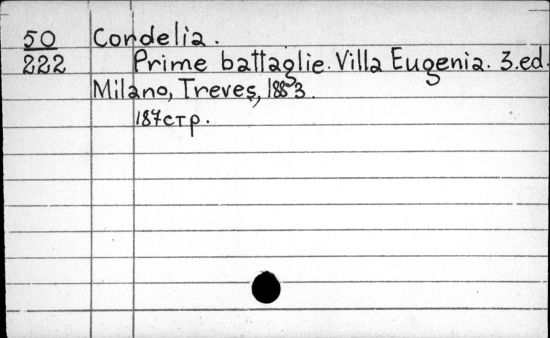 50 Cordelia.
222 Prime battaglie. Villa Eugenia. 3.ed.
Milano, Treves, 1883.
187стр.